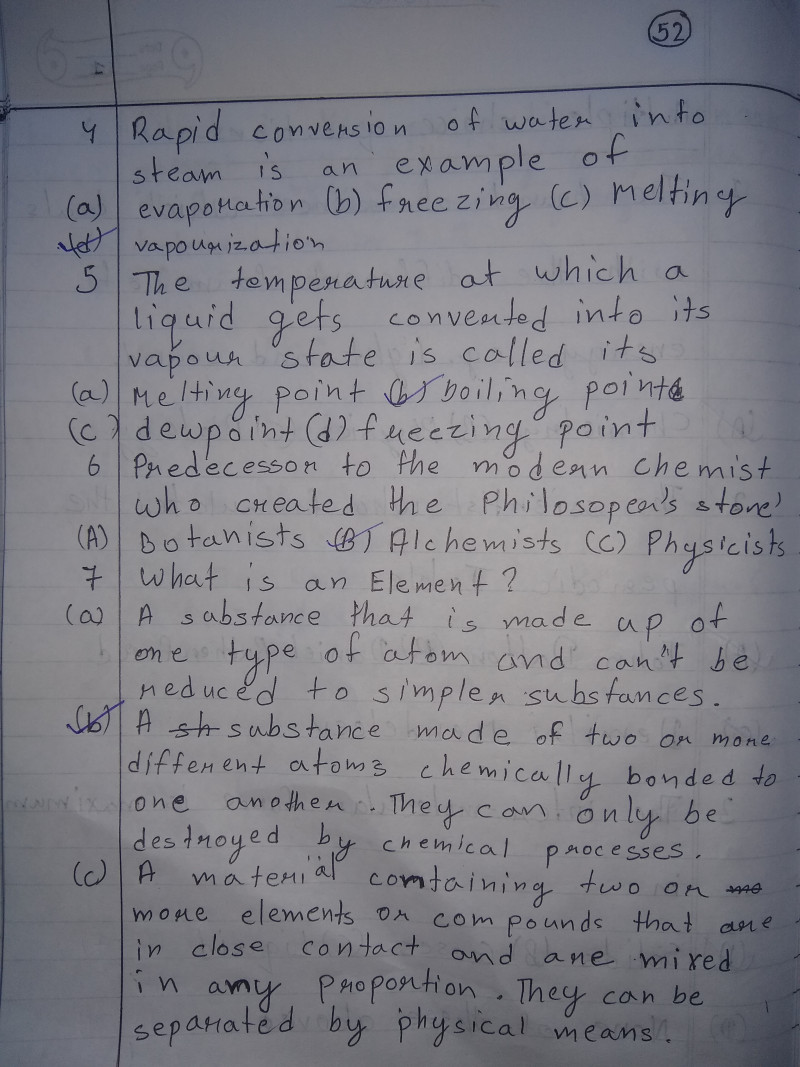 52
4 Rapid conversion of water into
steam is an example of
(a) evaporation (b) freezing (c) Melting
(d) vapourization
5 The temperature at which a
liquid gets converted into its
vapour state is called its
(a) Melting point (b) boiling point
(c) dewpoint (d) freezing point
6 Predecessor to the modern chemist
who created the Philosopear's stone'
(A) Botanists (B) Alchemists (C) Physicists
7 What is an Element?
(a) A substance that is made up of
one type of atom and can't be
reduced to simpler substances.
(b) A sh substance made of two or more
different atoms chemically bonded to
one another. They can only be
destroyed by chemical processes.
(c) A material containing two or
more elements or compounds that are
in close contact and are mixed
in any proportion. They can be
separated by physical means.